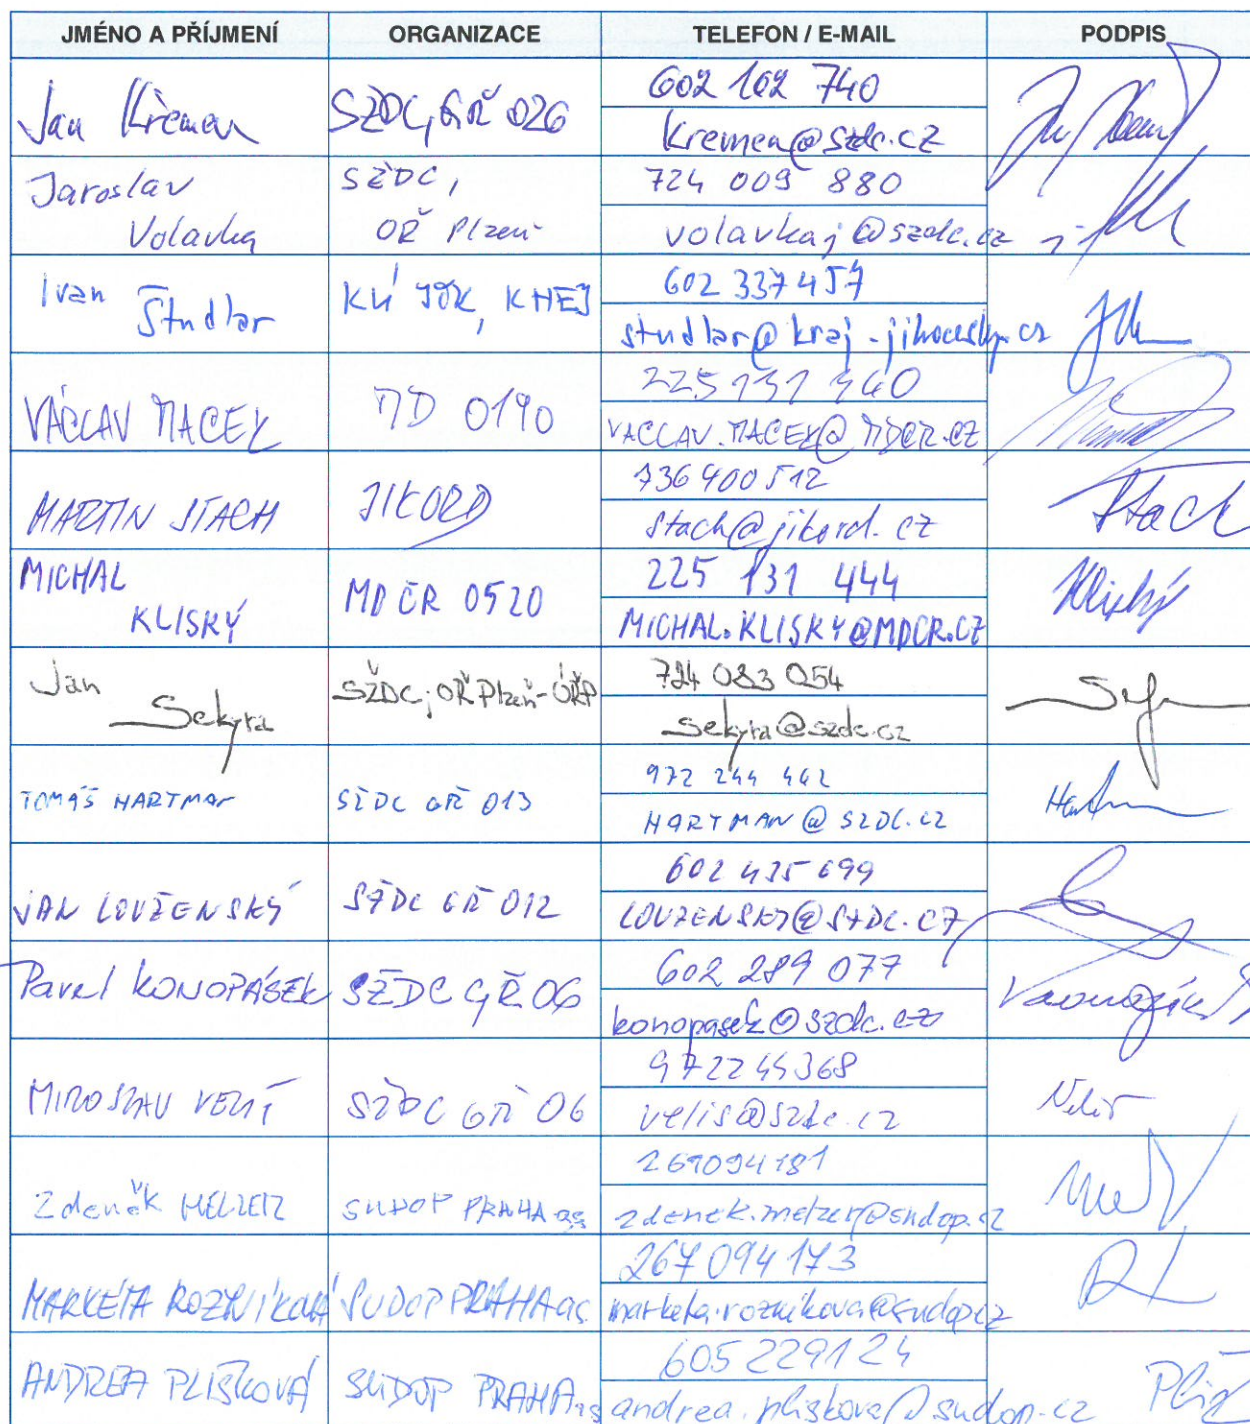 JMÉNO A PŘÍJMENÍ ORGANIZACE TELEFON / E-MAIL PODPIS
Jan Křemen SŽDC, GŘ 026 602 162 740
kremen@szdc.cz
Jaroslav Volavka SŽDC, OŘ Plzeň 724 009 880
volavkaj@szdc.cz
Ivan Študlar KÚ JČK, KHEJ 602 337 457
studlar@kraj-jihocesky.cz
VÁCLAV MACEK MD 0190 225 131 340
VACLAV.MACEK@MDCR.CZ
MARTIN STACH JIKORD 736 400 512 Stach
stach@jikord.cz
MICHAL KLISKÝ MD ČR 0520 225 131 444 Kliský
MICHAL.KLISKY@MDCR.CZ
Jan Sekyra SŽDC, OŘ Plzeň - ÚŘP 724 083 054
sekyra@szdc.cz
TOMÁŠ HARTMAN SŽDC GŘ 013 972 244 462
HARTMAN@SZDC.CZ
JAN LOUŽENSKÝ SŽDC GŘ 012 602 435 699
LOUZENSKY@SZDC.CZ
Pavel KONOPÁSEK SŽDC GŘ 06 602 289 077
konopasek@szdc.cz
MIROSLAV VELIŠ SŽDC GŘ 06 972244368
velis@szdc.cz
Zdeněk MELZER SUDOP PRAHA as 267094181
zdenek.melzer@sudop.cz
MARKÉTA ROZNÍKOVÁ SUDOP PRAHA as. 267 094 173
marketa.roznikova@sudop.cz
ANDREA PLIŠKOVÁ SUDOP PRAHA as 605 229124
andrea.pliskova@sudop.cz